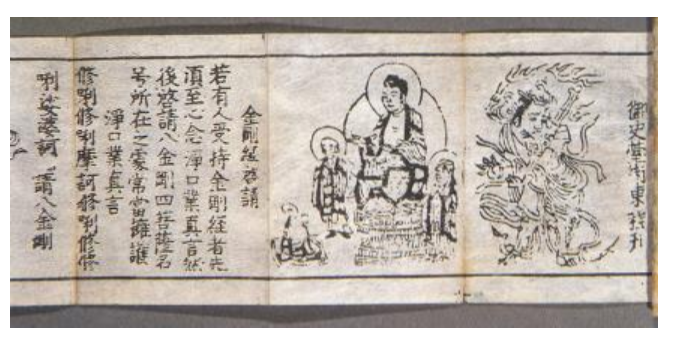 御史臺
金剛經啓請
若有人受持金剛經者先
須至心念淨口業真言然
後啓請八金剛四菩薩名
号所在之處常當擁護
淨口業真言
修唎修唎摩訶修唎修修
唎娑婆訶 請八金剛